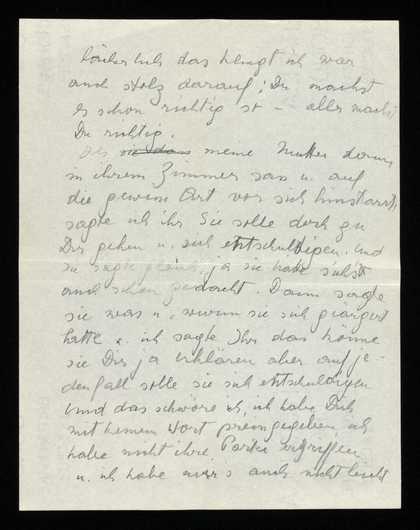 lächerlich das klingt ich war
auch stolz darauf; Du machst
es schon richtig so – alles machst
Du richtig.
Als sie dann meine Mutter dann
in ihrem Zimmer sass u. auf
die gewisse Art vor sich hinstarrte,
sagte ich ihr Sie solle doch zu
Dir gehen u. sich entschuldigen. Und
sie sagte gleich ja sie habe selbst
auch schon gedacht. Dann sagte
sie was u. warum sie sich geärgert
hatte u. ich sagte Ihr das könne
sie Dir ja erklären aber auf je-
denfall solle sie sich entschuldigen
Und das schwöre ich, ich habe Dich
mit keinem Wort preisgegeben ich
habe nicht ihre Partei ergriffen
u. ich habe auch nicht leicht